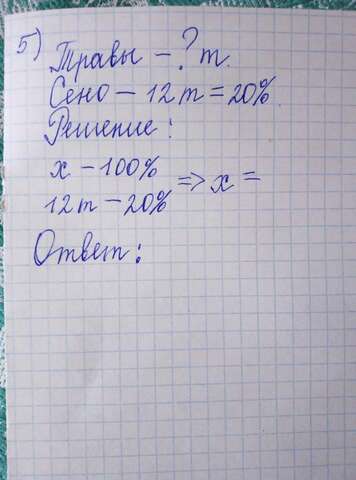 5)
Травы – ? т.
Сено – 12 т = 20%
Решение:
х – 100%
12 т – 20% => х =
Ответ: